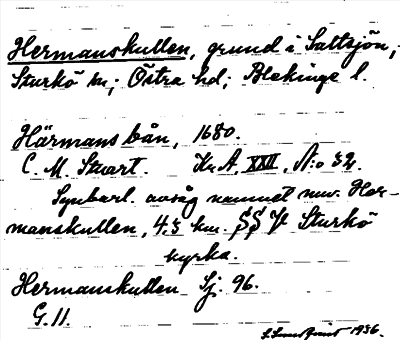 Hermanskullen, grund i Saltsjön,
Sturkö sn; Östra hd; Blekinge l.
Härmans bån, 1680.
C. M. Stuart. Kr A, XXII, N:o 32.
Synbarl. avsåg namnet nuv. Her-
manskullen, 4,5 km. SSV Sturkö
kyrka.
Hermanskullen Sj. 96.
G. 11.
1936.